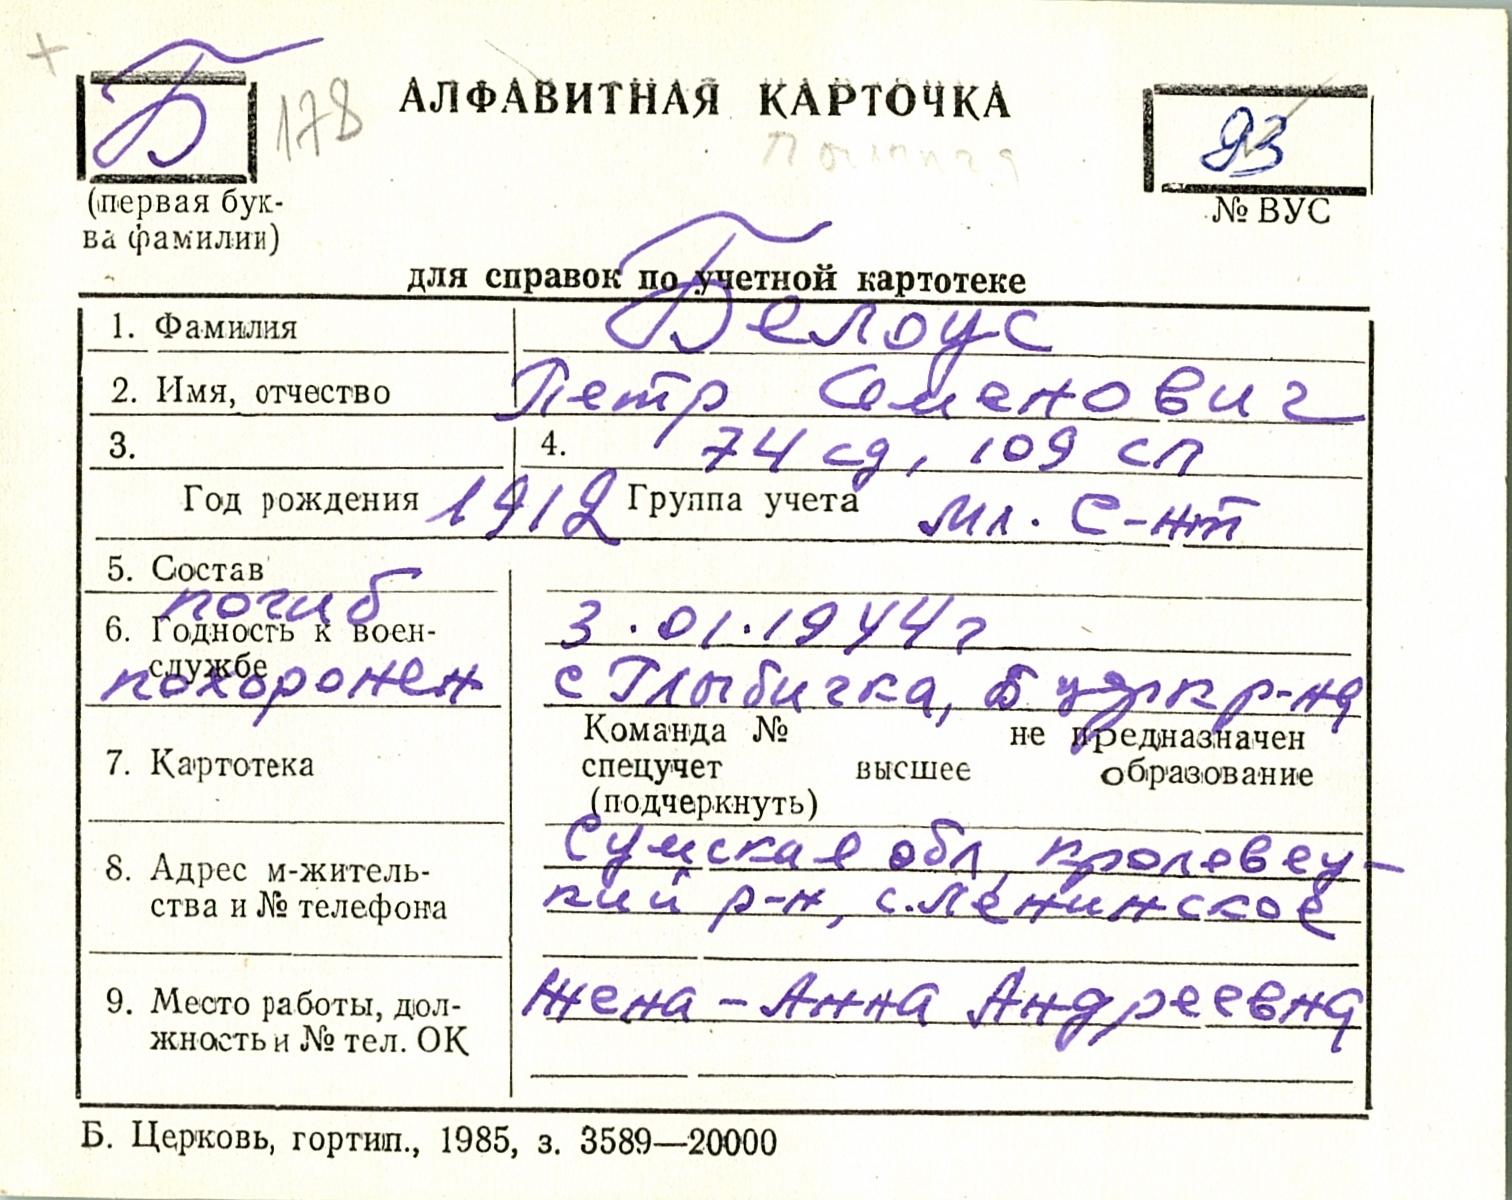 Б 178 АЛФАВИТНАЯ КАРТОЧКА 93
(первая бук-
ва фамилии)
№ ВУС
для справок по учетной картотеке
1. Фамилия Белоус
2. Имя, отчество Петр Семенович
3. 4. 74 сд, 109 сп
Год рождения 1912 Группа учета мл. с-нт
5. Состав
погиб 3.01.1944г
6. Годность к воен-
службе
похоронен с Глыбичка, Буцкр р-на
7. Картотека
Команда № не предназначен
спецучет высшее образование
(подчеркнуть)
8. Адрес м-житель-
ства и № телефона
Сумская обл, кролевец-
кий р-н, с. Ленинское
9. Место работы, дол-
жность и № тел. ОК
Жена - Анна Андреевна
Б. Церковь, гортип., 1985, з. 3589—20000